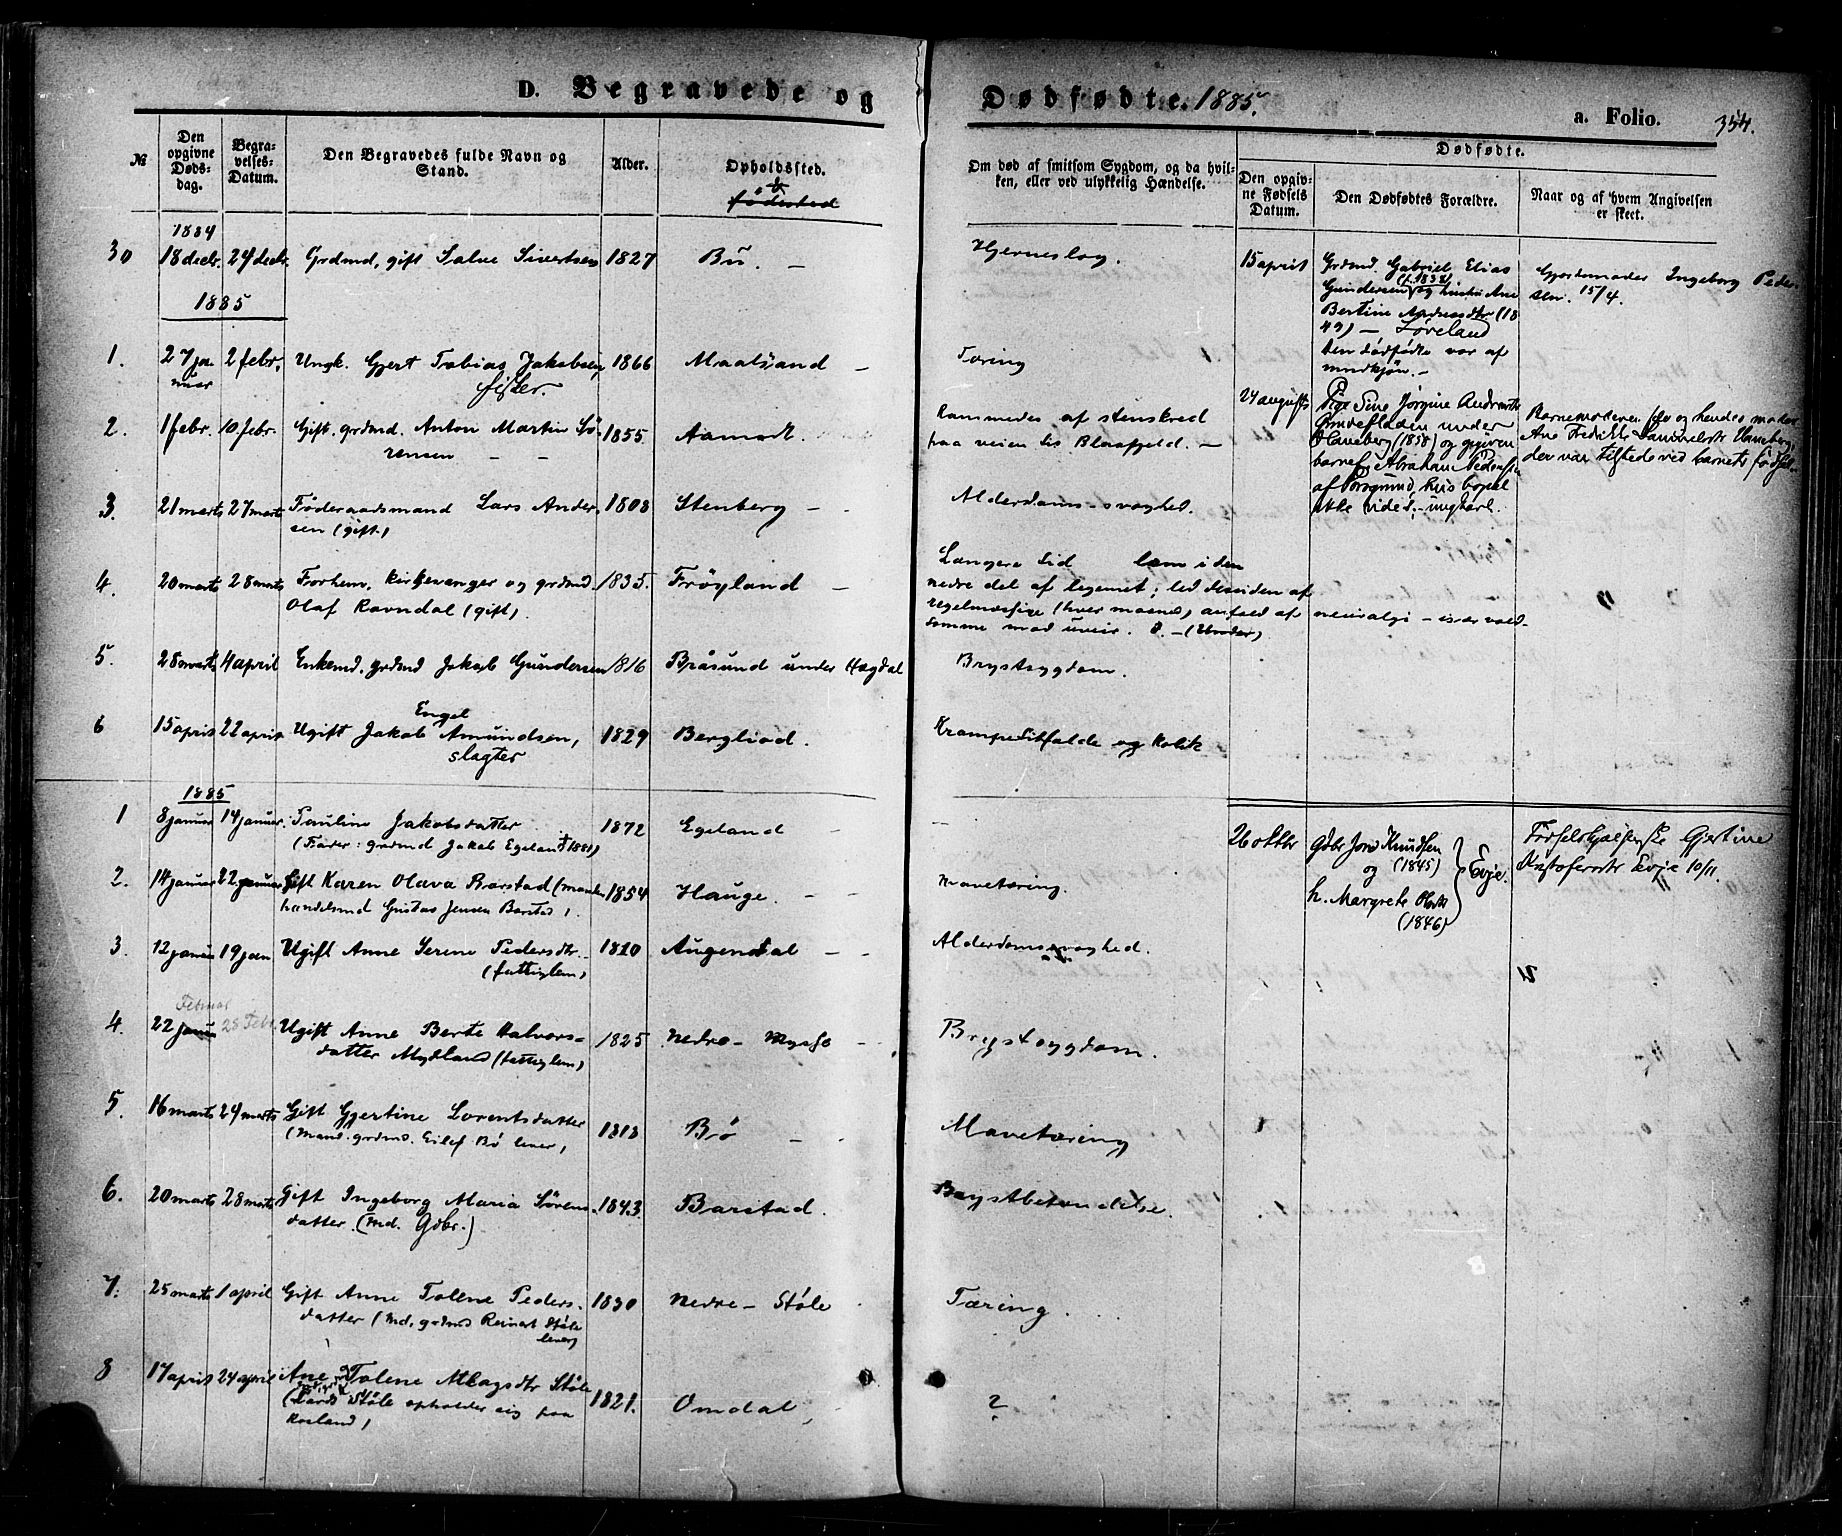 D. Begravede og Dødfødte. 1885.
a. Folio. 354.
№
Den opgivne Døds-dag.
Begra-velses-Datum.
Den Begravedes fulde Navn og Stand.
Alder.
Opholdssted.
fødested
Om død af smitsom Sygdom, og da hvil-ken, eller ved ulykkelig Hændelse.
Dødfødte.
Den opgiv-ne Fødsels Datum.
Den Dødfødtes Forældre.
Naar og af hvem Angivelsen er skeet.
1884
30 18 decbr. 24 decbr. Grdmd, gift Salve Sivertsen 1827 Bu. – Hjerneslag.
1885
1. 27 ja-nuar 2 febr. Ungk. Gjert Tobias Jakobsen, fisker. 1866 Maalsand – Tæring
2. 1 febr. 10 febr. Gift. grdmd. Anton Martin 1855. Aamodt. Rammedes af stenskred
paa veien Blaafjeld. –
3. 21 marts 27 marts Føderaadsmand Lars Ander-sen (gift) 1808 Stenberg – Alderdoms-svaghed.
4. 20 marts 28 marts Forhenv. kirkesanger og grdmd. 1835. Frøyland – Længere tid lam i den
Olaf Ravndal (gift). nedre del af legemet; led desuden af
regelmæssige (hver maaned) anfald af neuralgi – især vold-
somme mod uveir.
5. 28 marts 4 april Enkemd. grdmd Jakob Gundersen 1816 Bråsund under Hægdal Brystsygdom.
6 15 april 22 april Ugift Jakob Engel Amundsen, slagter 1829 Bergliod. Krampetilfælde og Kolik
1885
1 8 januar 14 januar. Pauline Jakobsdatter 1872 Egeland – –
(Fader: grdmd Jakob Egeland † 1881)
2. 14 januar 22 januar Gift Karen Olava Barstad (mand 1854 Hauge. – Mavetæring.
handelsmd Gustav Jensen Barstad).
3. 12 januar 19 jan Ugift Anne Serine Pedersdtr. 1810 Augendal – Alderdomssvaghed.
(fattiglem)
Februar
4. 22 januar 28 Feb. Ugift Anne Berte Halvors- 1825 Nedre- Mysse – Brystsygdom.
datter Mydland (fattiglem)
5. 16 marts 24 marts Gift Gjertine Lorentsdatter 1818 Bø – Mavetæring
(Mand. grdmd. Eilef Bø lever)
6. 20 marts 28 marts Gift Ingeborg Maria Sørens- 1843. Barstad. Brystbetændelse.
datter. (Md. Gdbr.)
7. 25 marts 1 april Gift Anne Tolene Peders- 1830 Nedre- Støle Tæring.
datter (Md. grdmd Reinert Støle lever)
8 17 april 24 april Ane Tolene Aslagsdtr Støle 1821. Omdal, ?
Støle opholder sig paa
15 april Grdmd. Gabriel Elias
Gundersen (f. 1838) og hustru Ane
Bertine Andreasdtr (18
49) – Løveland
den dødfødte var af
mandkjøn. –
Gjordemoder Ingeborg Peder-
sen. 15/4.
24 augusts Pige Sine Jørgine Andreasdtr
under
Haneberg (1858) og opgiven
barnef. Abraham Pedersen
af Porsgrund, hvis bopæl
ikke vides, – ungkarl.
Barnemoderen selv og hendes moder
Ane Fredikke Samuelsdtr Haneberg,
der var tilstede ved barnets fødsel.
26 oktbr Gdbr Jens Knudsen (1845)
og
h. Margrete Olsdtr (1846)
Evje.
Fødselshjælperske Gjertine
Kristofersdtr Evje 10/11.